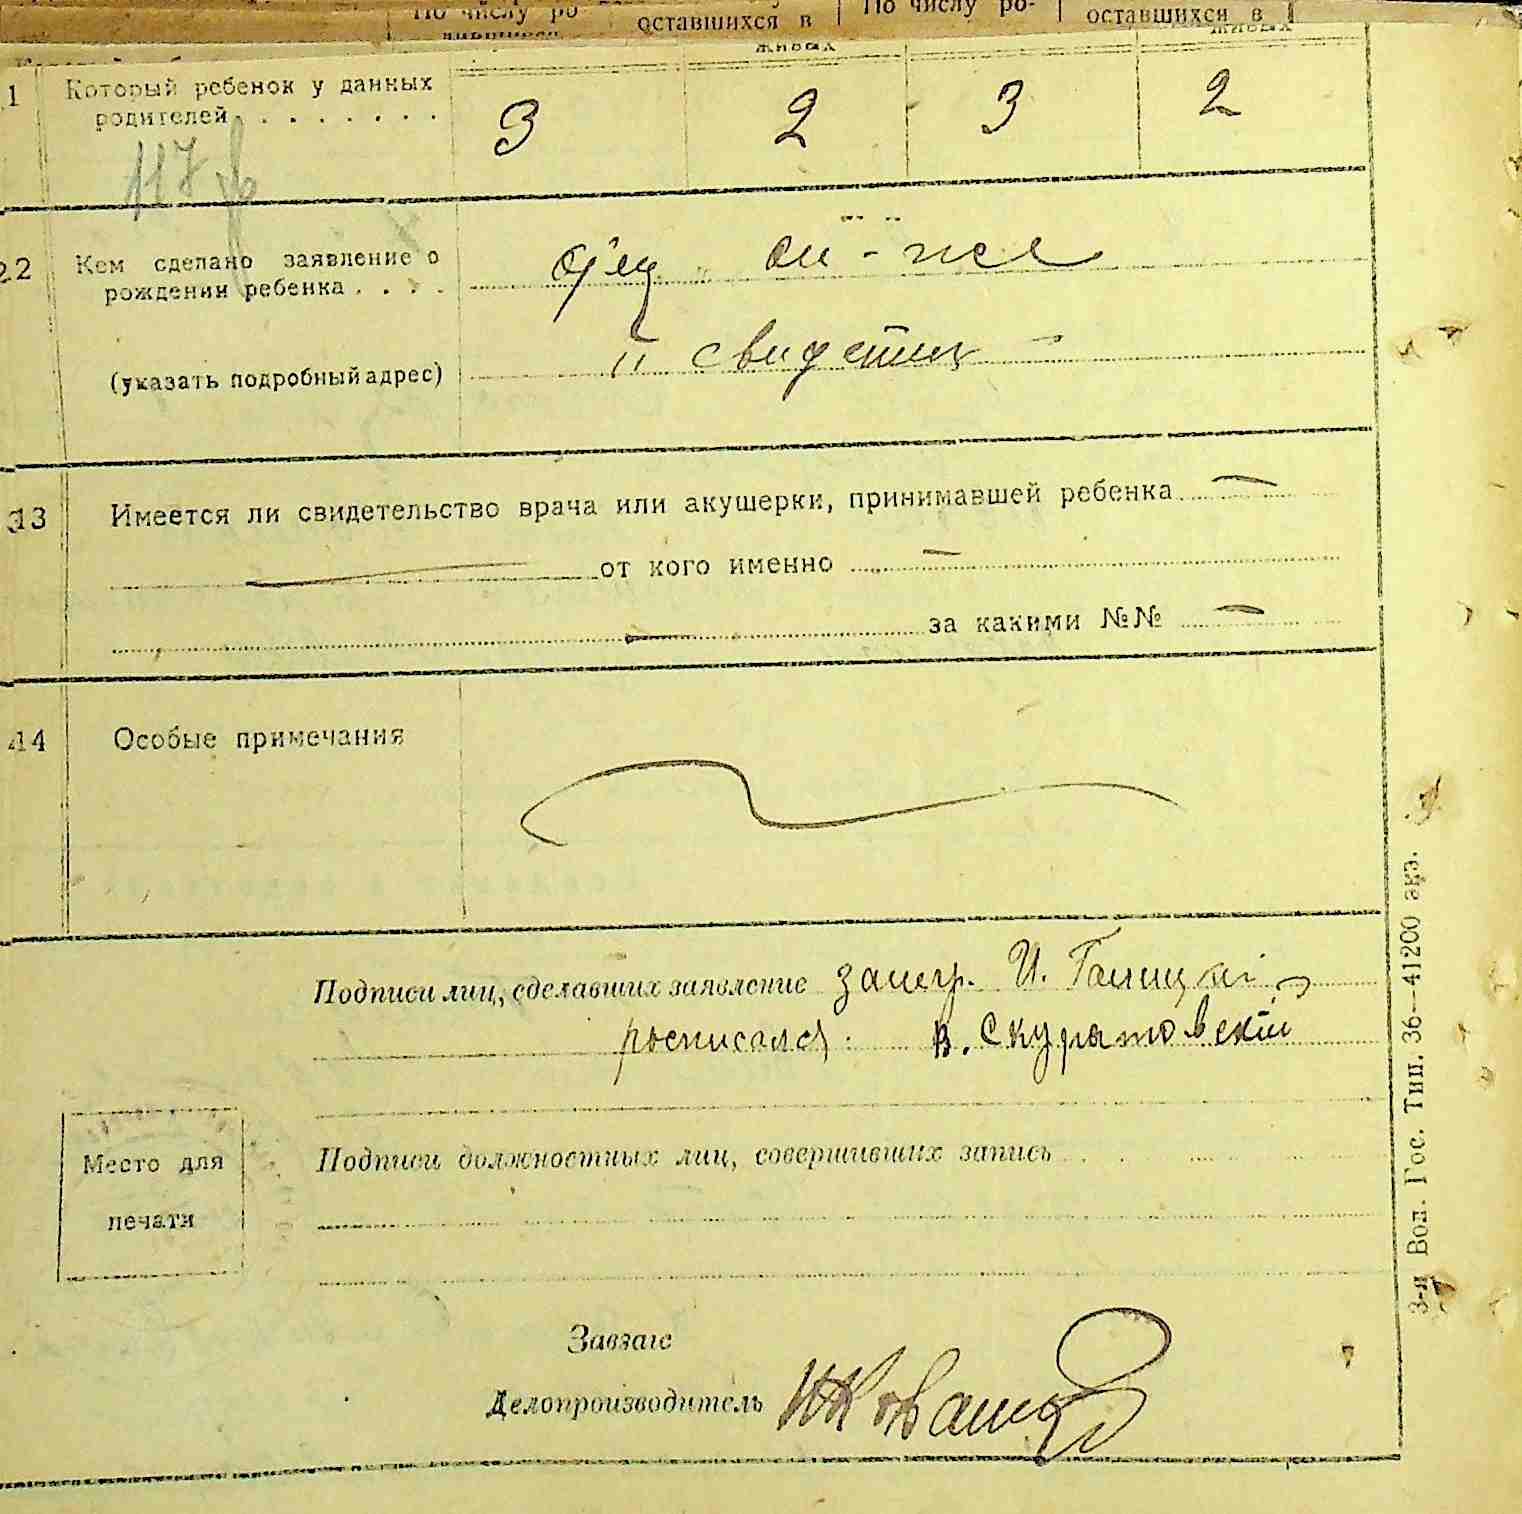 По числу ро- оставшихся в По числу ро- оставшихся в
живых живых
1 Который ребенок у данных 3 2 3 2
родителей . . . . . . . .
117
Кем сделано заявление о
рождении ребенка . . . .
(указать подробный адрес) свидетели
13 Имеется ли свидетельство врача или акушерки, принимавшей ребенка —
— от кого именно —
— за какими №№ —
14 Особые примечания
Подписи лиц, сделавших заявление И. Галицкий
росписался: В. Скуратовский
Место для
печати
Подписи должностных лиц, совершивших запись
Завзагс
Делопроизводитель
3-я Вол. Гос. Тип. 36—41200 экз.